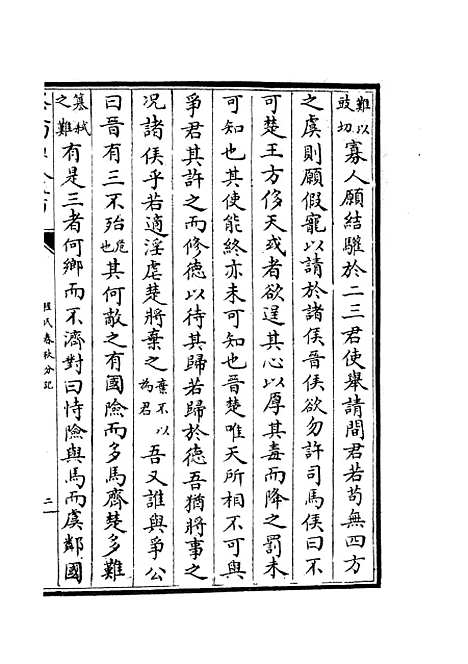 難以豉切寡人願結驩於二三君使舉請間君若苟無四方
之虞則願假寵以請於諸侯晉侯欲勿許司馬侯曰不
可楚王方侈天或者欲逞其心以厚其毒而降之罰未
可知也其使能終亦未可知也晉楚唯天所相不可與
爭君其許之而修德以待其歸若歸於德吾猶將事之
况諸侯乎若適淫虐楚將棄之棄不以為君吾又誰與爭公
曰晉有三不殆危也其何敵之有國險而多馬齊楚多難
簒弑之難有是三者何鄉而不濟對曰恃險與馬而虞鄰國
程氏春秋分記
二